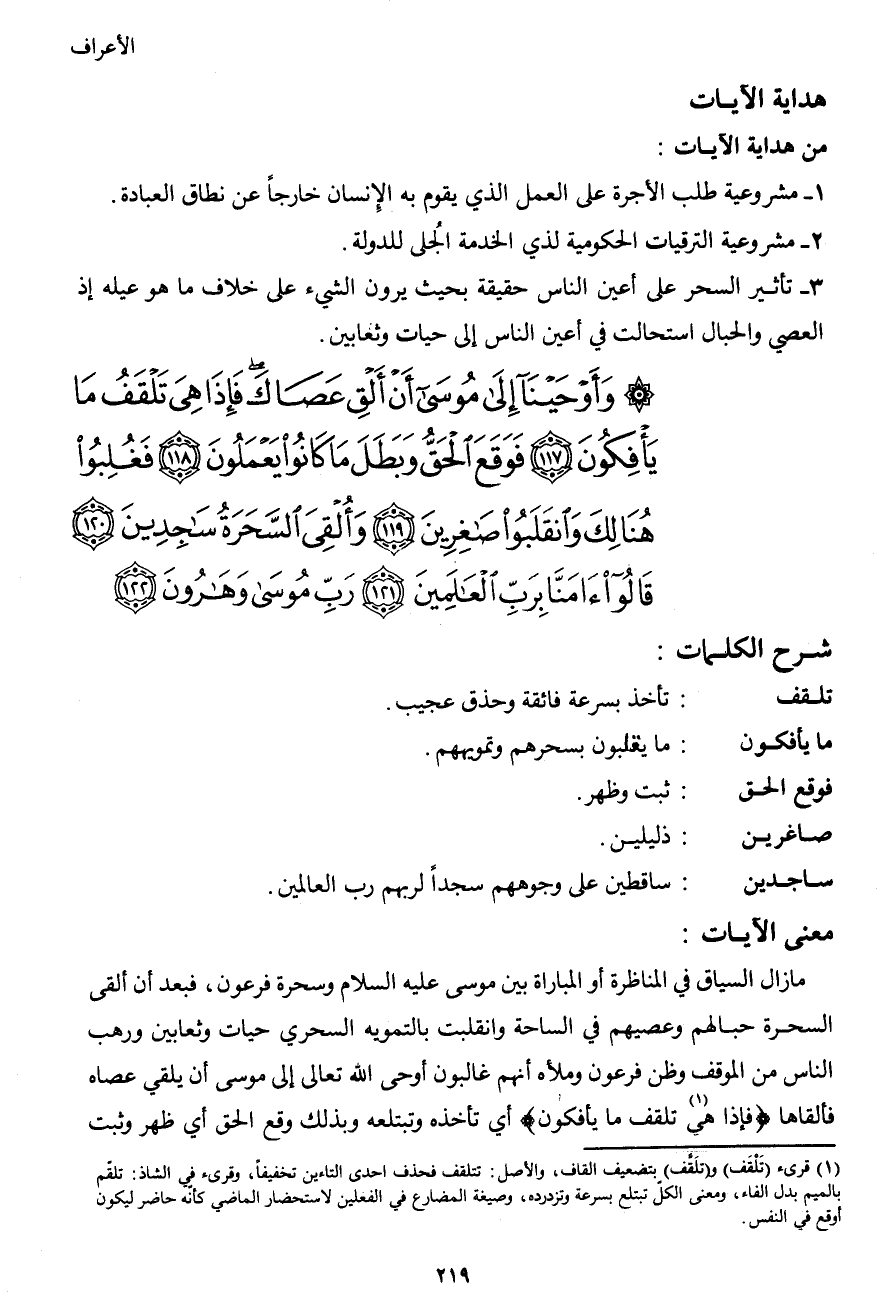 الأعراف
هداية الآيـات
من هداية الآيـات :
١ـ مشروعية طلب الأجرة على العمل الذي يقوم به الإنسان خارجاً عن نطاق العبادة .
٢ـ مشروعية الترقيات الحكومية لذي الخدمة الجُلى للدولة .
٣ـ تأثـير السحر على أعين الناس حقيقة بحيث يرون الشيء على خلاف ما هو عيله إذ
العصي والحبال استحالت في أعين الناس إلى حيات وثعابين .
۞ وَأَوْحَيْنَآ إِلَىٰ مُوسَىٰٓ أَنْ أَلْقِ عَصَاكَ ۖ فَإِذَا هِىَ تَلْقَفُ مَا
يَأْفِكُونَ ﴿١١٧﴾ فَوَقَعَ ٱلْحَقُّ وَبَطَلَ مَا كَانُوا۟ يَعْمَلُونَ ﴿١١٨﴾ فَغُلِبُوا۟
هُنَالِكَ وَٱنقَلَبُوا۟ صَٰغِرِينَ ﴿١١٩﴾ وَأُلْقِىَ ٱلسَّحَرَةُ سَٰجِدِينَ ﴿١٢٠﴾
قَالُوٓا۟ ءَامَنَّا بِرَبِّ ٱلْعَٰلَمِينَ ﴿١٢١﴾ رَبِّ مُوسَىٰ وَهَٰرُونَ ﴿١٢٢﴾
شـرح الكلـمات :
تلـقف : تأخذ بسرعة فائقة وحذق عجيب .
ما يأفكـون : ما يقلبون بسحرهم وتمويههم .
فوقع الحـق : ثبت وظهر .
صـاغريـن : ذليليـن .
سـاجـدين : ساقطين على وجوههم سجداً لربهم رب العالمين .
معنى الآيـات :
مازال السياق في المناظرة أو المباراة بين موسى عليه السلام وسحرة فرعون ، فبعد أن ألقى
السحـرة حبـالهم وعصيهم في الساحة وانقلبت بالتمويه السحري حيات وثعابين ورهب
الناس من الموقف وظن فرعون وملأه أنهم غالبون أوحى الله تعالى إلى موسى أن يلقي عصاه
فألقاها ﴿فإذا هي(١) تلقف ما يأفكون﴾ أي تأخذه وتبتلعه وبذلك وقع الحق أي ظهر وثبت
(١) قرىء (تَلْقَف) و(تَلَقَّف) بتضعيف القاف، والأصل: تتلقف فحذف احدى التاءين تخفيفاً، وقرىء في الشاذ: تلقّم
بالميم بدل الفاء، ومعنى الكلّ تبتلع بسرعة وتزدرده، وصيغة المضارع في الفعلين لاستحضار الماضي كأنّه حاضر ليكون
أوقع في النفس .
٢١٩